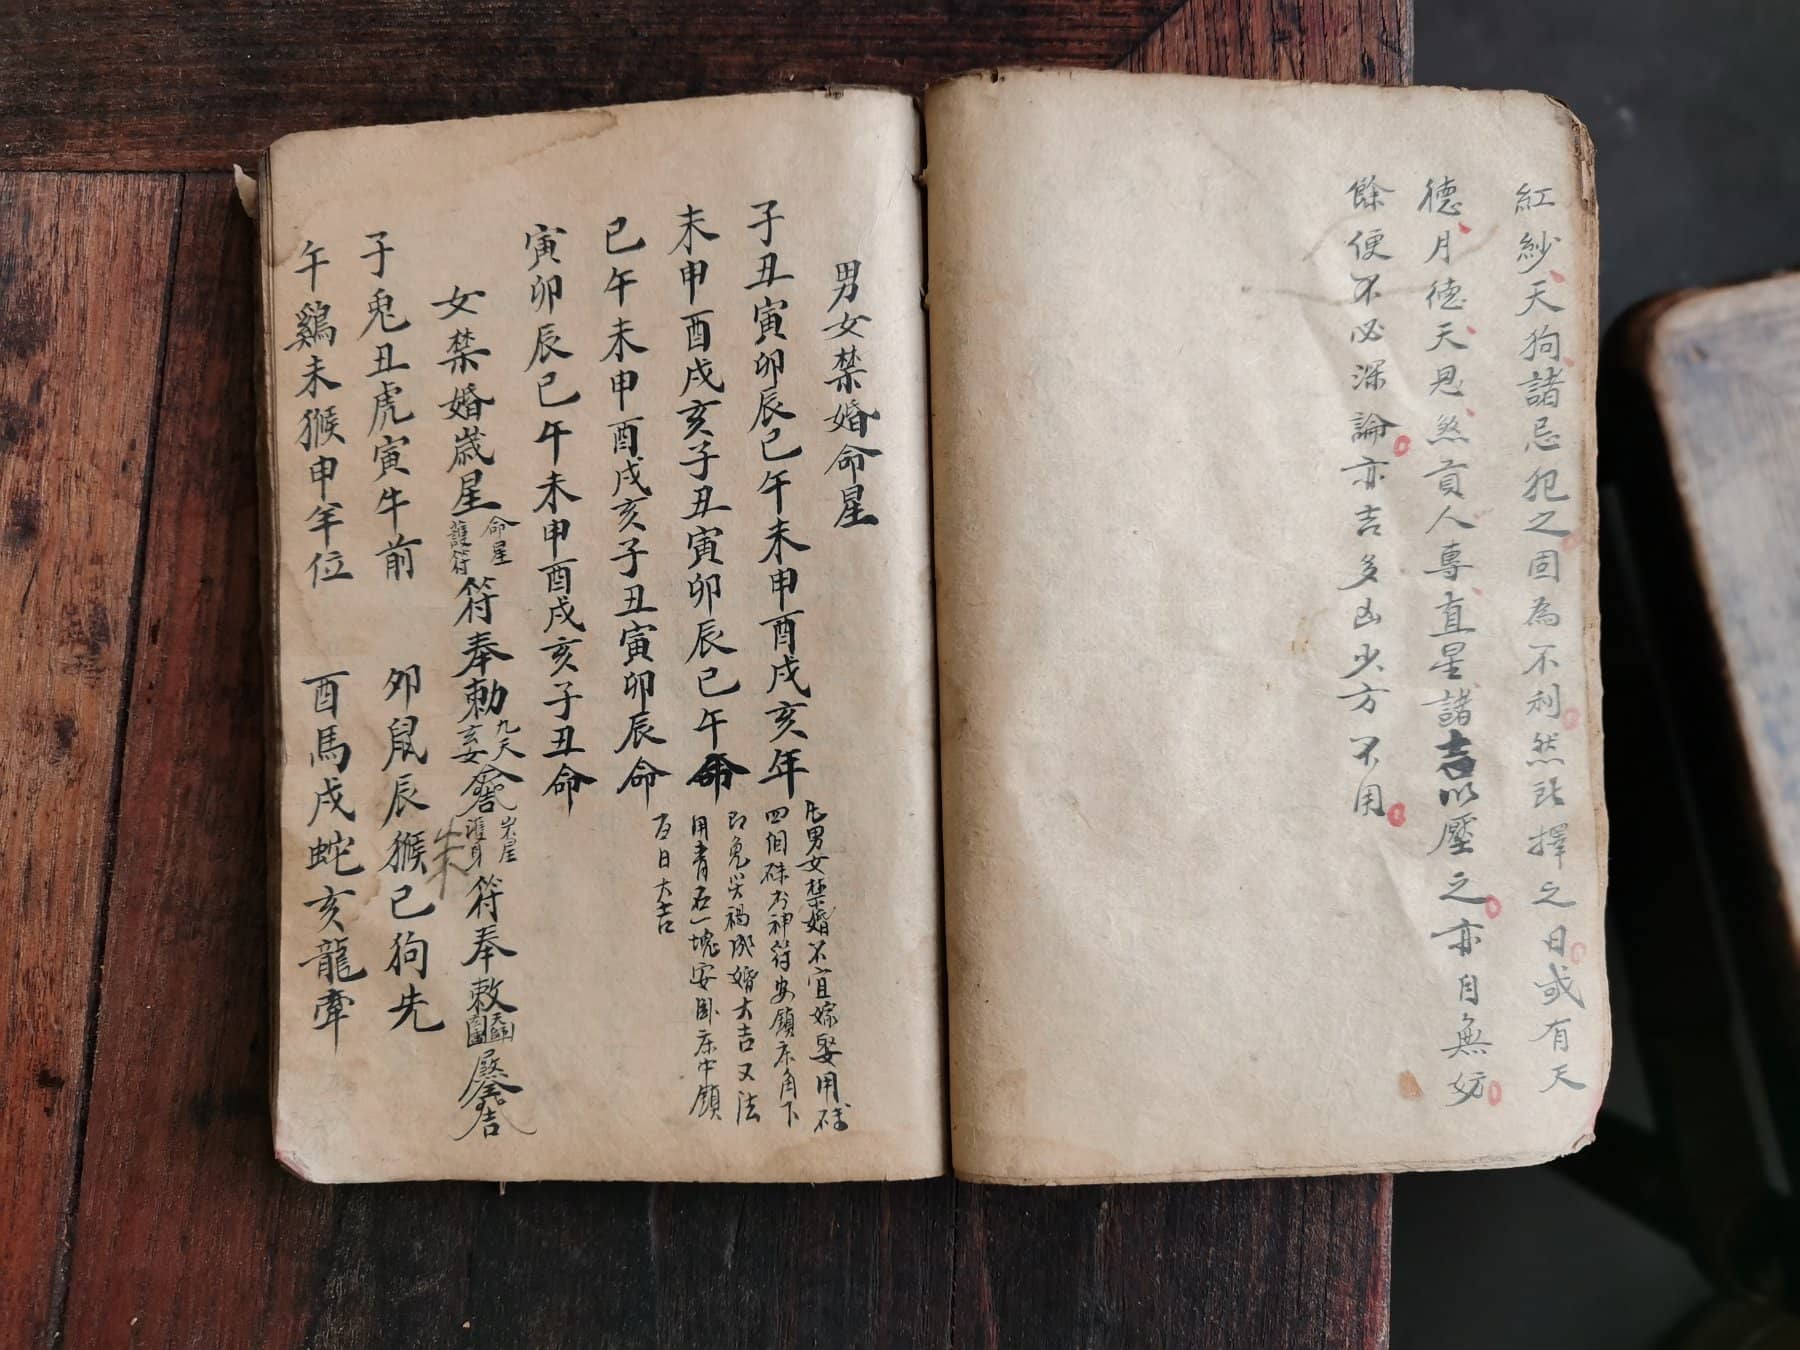 紅紗天狗諸忌犯之固為不利然既擇之日或有天
德月德天恩煞貢人專直星諸吉以壓之亦自無妨
餘便不必深論亦吉多凶少方不用
男女禁婚命星
子丑寅卯辰巳午未申酉戌亥年
未申酉戌亥子丑寅卯辰巳午命
巳午未申酉戌亥子丑寅卯辰命
寅卯辰巳午未申酉戌亥子丑命
凡男女禁婚不宜嫁娶用硃
四個硃書神符安鎮床角下
即免災禍成婚大吉又法
用青石一塊安臥床中鎮
百日大吉
女禁婚歲星
命星
護符
符奉勅
九天
玄女
護身
符奉敕
子兔丑虎寅牛前 卯鼠辰猴巳狗先
午鷄未猴申羊位 酉馬戌蛇亥龍牽
朱